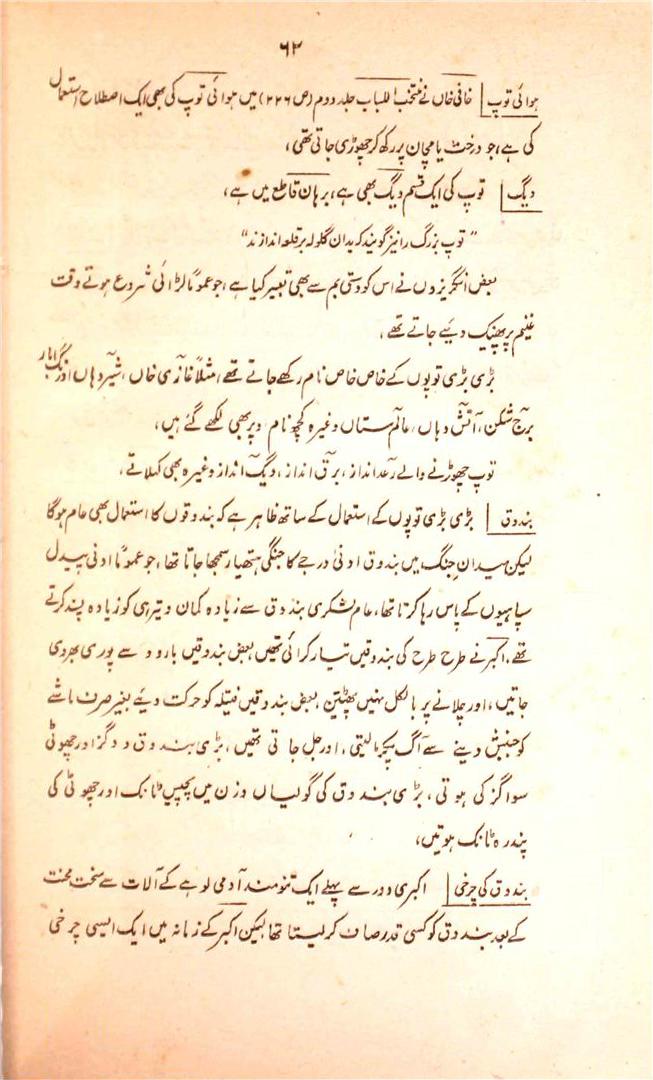 ۶۳
ہوائی توپ | خافی خاں نے منتخب اللباب جلد دوم (ص ۲۲۶) میں ہوائی توپ کی بھی ایک اصطلاح استعمال
کی ہے، جو درخت یا مچان پر رکھ کر چھوڑی جاتی تھی،
دیگ | توپ کی ایک قسم دیگ بھی ہے، برہان قاطع میں ہے،
"توپ بزرگ رانیز گویند کہ بدان گلولہ بر قلعہ اندازند"
بعض انگریزوں نے اس کو دستی بم سے بھی تعبیر کیا ہے، جو عموماً لڑائی شروع ہوتے وقت
غنیم پر پھینک دیئے جاتے تھے،
بڑی بڑی توپوں کے خاص خاص نام رکھے جاتے تھے، مثلاً غازی خاں، شیر دہاں،
برج شکن، آتش دہاں، عالم ستاں وغیرہ کچھ نام اوپر بھی لکھے گئے ہیں،
توپ چھوڑنے والے رعد انداز، برق انداز، دیگ انداز وغیرہ بھی کہلاتے،
بندوق | بڑی بڑی توپوں کے استعمال کے ساتھ ظاہر ہے کہ بندوقوں کا استعمال بھی عام ہوگا
لیکن میدانِ جنگ میں بندوق ادنیٰ درجے کا جنگی ہتھیار سمجھا جاتا تھا، جو عموماً ادنی پیدل
سپاہیوں کے پاس رہا کرتا تھا، عام لشکری بندوق سے زیادہ کمان و تیر ہی کو زیادہ پسند کرتے
تھے، اکبر نے طرح طرح کی بندوقیں تیار کرائی تھیں، بعض بندوقیں بارود سے پوری بھر دی
جاتیں، اور چلانے پر بالکل نہیں پھٹتیں، بعض بندوقیں فتیلہ کو حرکت دیئے بغیر صرف ماشے
کو جنبش دینے سے آگ پکڑ لیتی، اور چل جاتی تھیں، بڑی بندوق دو گز اور چھوٹی
سوا گز کی ہوتی، بڑی بندوق کی گولیاں وزن میں پچیس ٹانک اور چھوٹی کی
پندرہ ٹانک ہوتیں،
بندوق کی چرخی | اکبری دور سے پہلے ایک تنومند آدمی لوہے کے آلات سے سخت محنت
کے بعد بندوق کو کسی قدر صاف کر لیتا تھا لیکن اکبر کے زمانہ میں ایک ایسی چرخی